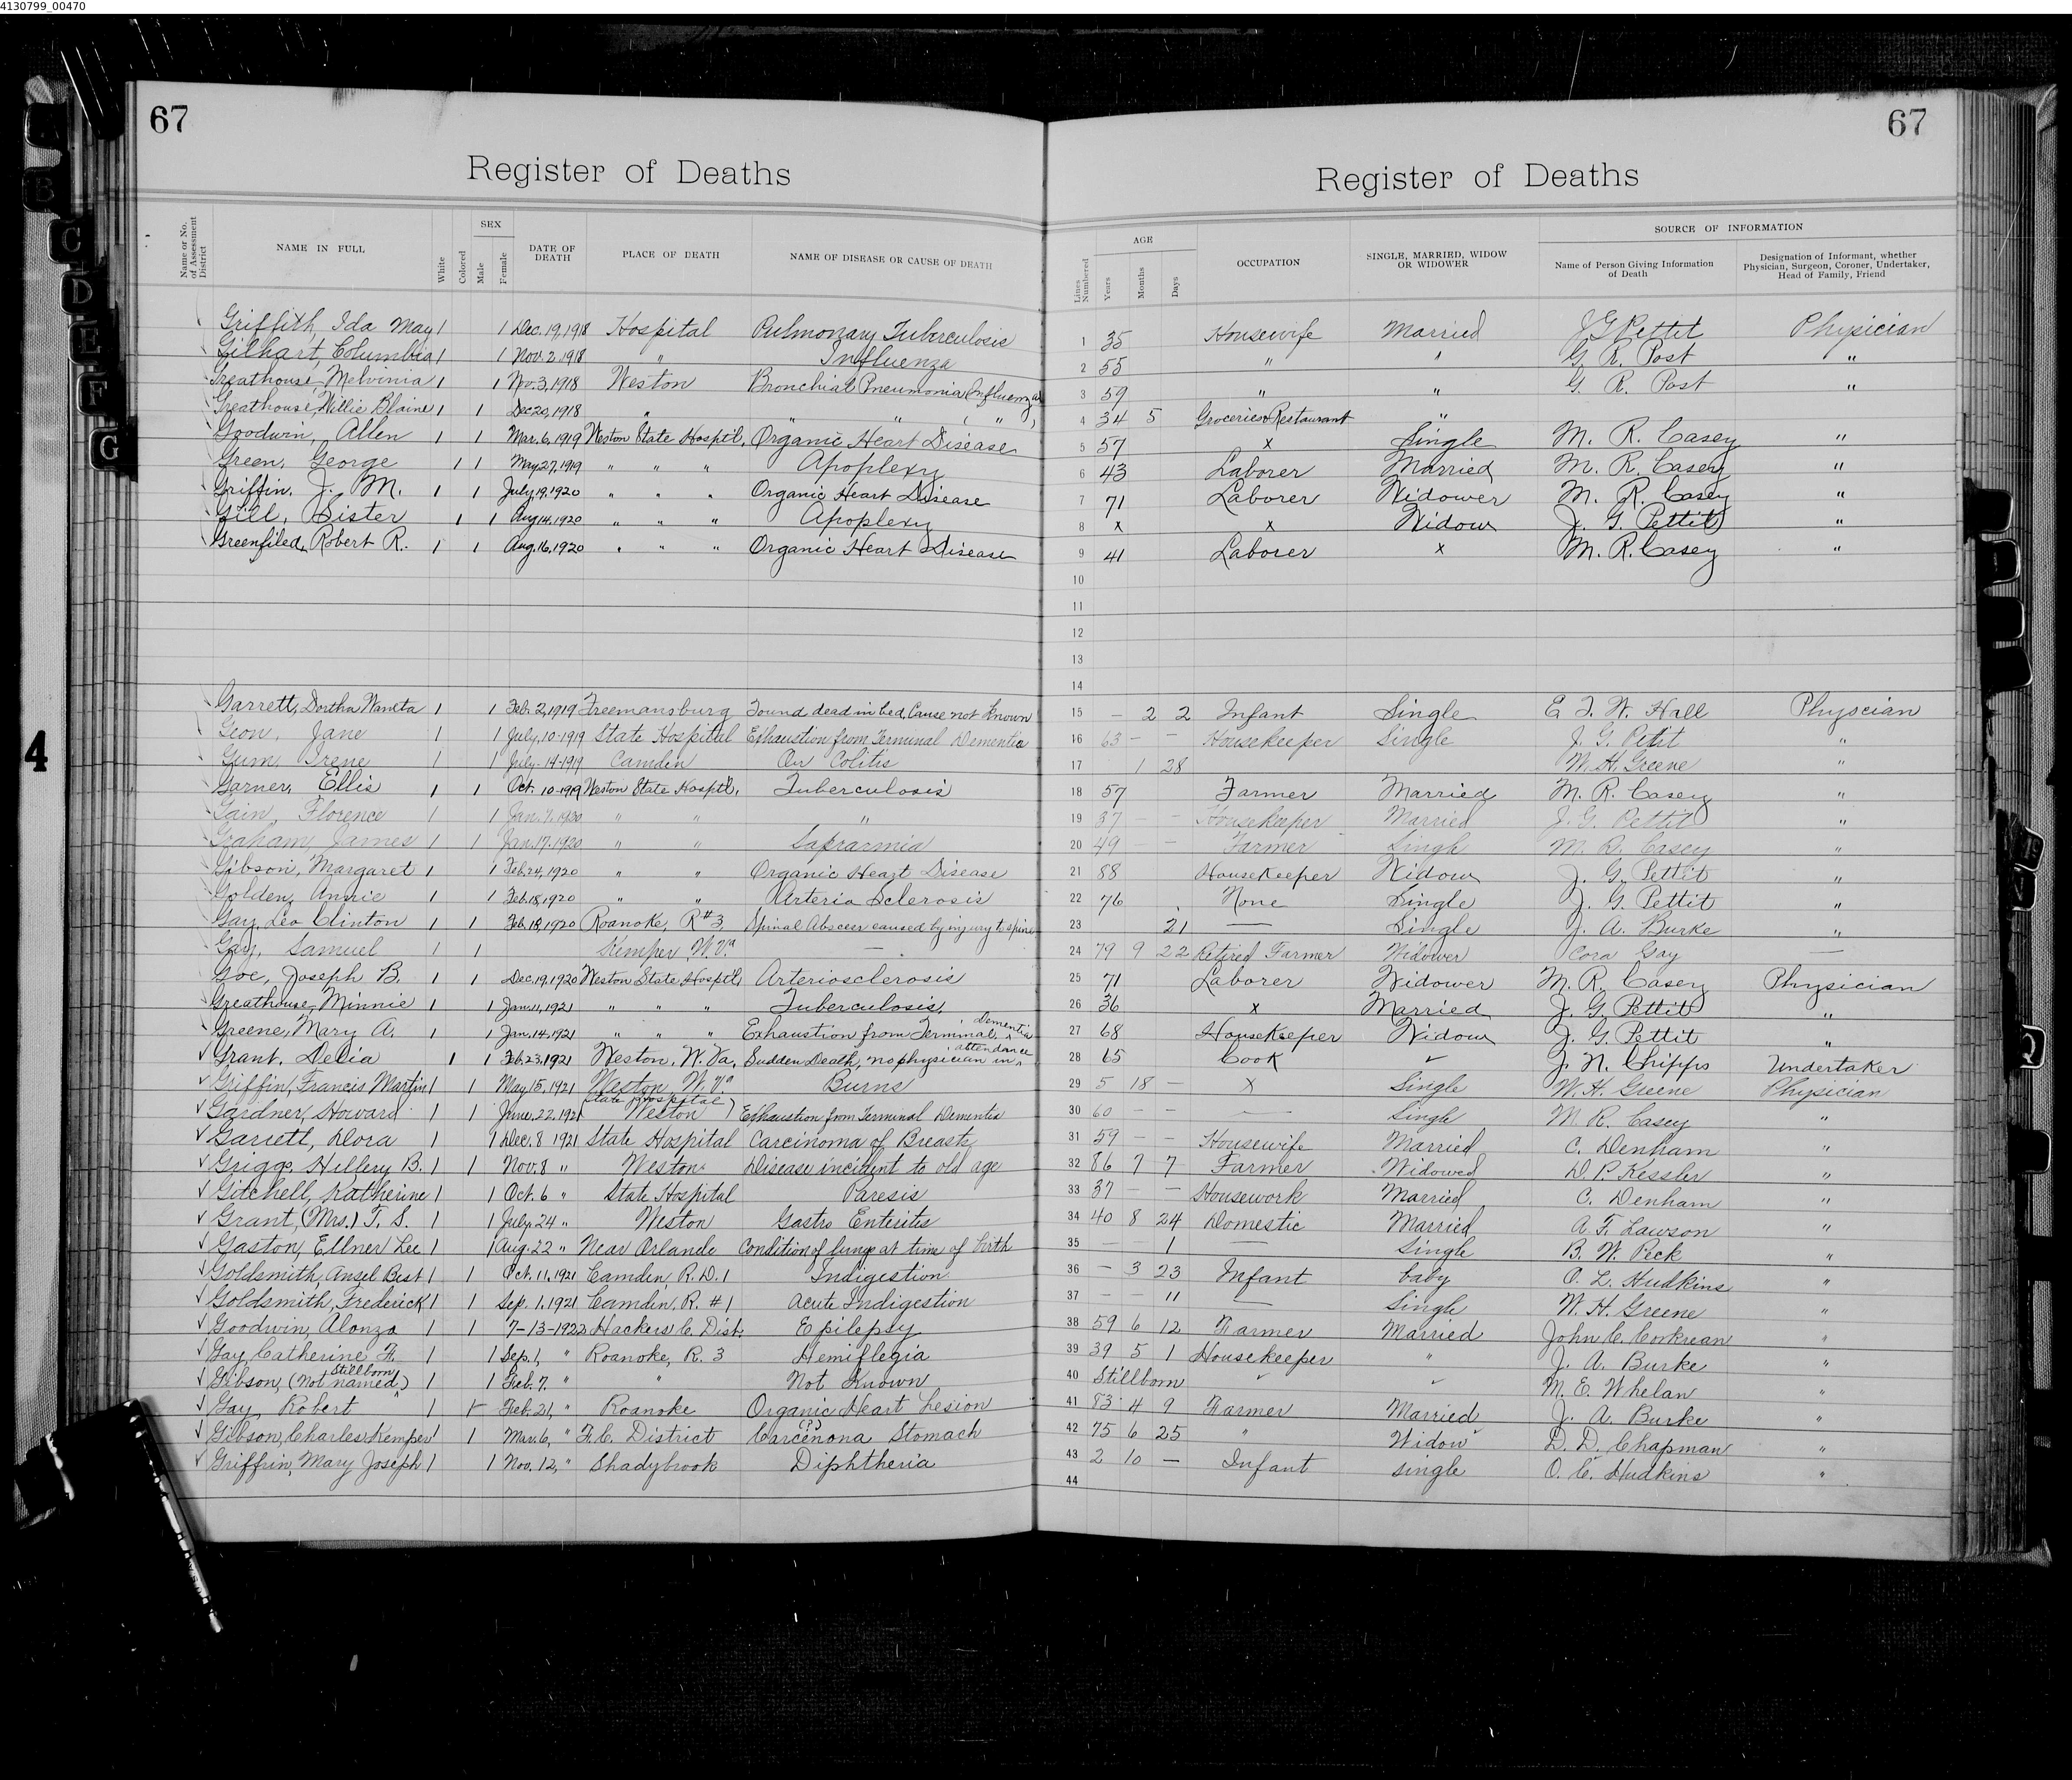 4130799_00470
67
Register of Deaths
Name or No. of Assessment District
NAME IN FULL
White
Colored
SEX
Male
Female
DATE OF DEATH
PLACE OF DEATH
NAME OF DISEASE OR CAUSE OF DEATH
Griffith, Ida May 1 1 Dec. 19, 1918 Hospital Pulmonary Tuberculosis
Gilhart, Columbia 1 1 Nov. 2. 1918 " Influenza
Greathouse, Melvinia 1 1 Nov. 3, 1918 Weston Bronchial Pneumonia, Influenza
Greathouse, Willie Blaine 1 1 Dec 20, 1918 " " " "
Goodwin, Allen 1 1 Mar. 6, 1919 Weston State Hospt'l, Organic Heart Disease
Green, George 1 1 May 27, 1919 " " " Apoplexy
Griffin, J. M. 1 1 July, 19, 1920 " " " Organic Heart Disease
Gill, Sister 1 1 Aug 14, 1920 " " " Apoplexy
Greenfiled, Robert R. 1 1 Aug. 16, 1920 " " " Organic Heart Disease
Garrett, Dortha Waneta 1 1 Feb. 2, 1919 Freemansburg Found dead in bed, Cause not known
Geon, Jane 1 1 July, 10-1919 State Hospital Exhaustion from Terminal Dementia
Gum, Irene 1 1 July-14-1919 Camden Colitis
Garner, Ellis 1 1 Oct. 10-1919 Weston State Hospt'l, Tuberculosis
Gain, Florence 1 1 Jan. 7, 1920 " " "
Graham, James 1 1 Jan. 17. 1920 " " Sapraemia
Gibson, Margaret 1 1 Feb. 24, 1920 " " Organic Heart Disease
Golden, Annie 1 1 Feb. 18, 1920 " " Arteria Sclerosis
Gay, Leo Clinton 1 1 Feb. 18, 1920 Roanoke, R#3, Spinal Abscess caused by injury to spine
Gay, Samuel 1 1 Kemper W. Va —
Goe, Joseph B. 1 1 Dec. 19, 1920 Weston State Hospt'l, Arteriosclerosis
Greathouse, Minnie 1 1 Jan. 11, 1921 " " " Tuberculosis.
Greene, Mary A. 1 1 Jan. 14, 1921 " " " Exhaustion from Terminal Dementia
Grant, Delia 1 1 Feb. 23, 1921 Weston, W. Va, Sudden Death, no physician in attendance
Griffin, Francis Martin 1 1 May 15, 1921 Weston, W. Va Burns
Gardner, Howard 1 1 June. 22, 1921 State Hospital Weston Exhaustion from Terminal Dementia
Garrett, Dora 1 1 Dec. 8 1921 State Hospital Carcinoma of Breast
Griggs, Hillery B. 1 1 Nov. 8 " Weston Disease incident to old age
Gitchell, Katherine 1 1 Oct. 6 " State Hospital Paresis
Grant, (Mrs.) T. S. 1 1 July, 24 " Weston Gastro Enteritis
Gaston, Ellner Lee 1 1 Aug. 22 " Near Orlando Condition of lungs at time of birth
Goldsmith, Ansel Best 1 1 Oct. 11, 1921 Camden, R. D. 1 Indigestion
Goldsmith, Frederick 1 1 Sep. 1, 1921 Camden, R. #1 Acute Indigestion
Goodwin, Alonzo 1 1 7-13-1922 Hackers C. Dist. Epilepsy
Gay, Catherine F. 1 1 Sep. 1, " Roanoke, R. 3 Hemiflegia
Gibson, (Not named, Stillborn) 1 1 Feb. 7. " " Not Known
Gay, Robert 1 1 Feb. 21, " Roanoke Organic Heart Lesion
Gibson, Charles Kemper 1 1 Mar. 6, " F. C. District Carcenona (?) Stomach
Griffrin, Mary Joseph 1 1 Nov. 12, " Shadybrook Diphtheria
67
Register of Deaths
Lines Numbered
AGE
Years
Months
Days
OCCUPATION
SINGLE, MARRIED, WIDOW OR WIDOWER
SOURCE OF INFORMATION
Name of Person Giving Information of Death
Designation of Informant, whether Physician, Surgeon, Coroner, Undertaker, Head of Family, Friend
1 35 Housewife Married J G Pettit Physician
2 55 " " G. R. Post "
3 59 " " G. R. Post "
4 34 5 Groceries & Restaurant "
5 57 x Single M. R. Casey "
6 43 Laborer Married M. R. Casey "
7 71 Laborer Widower M. R. Casey "
8 x x Widow J. G. Pettit "
9 41 Laborer x M. R. Casey "
10
11
12
13
14
15 — 2 2 Infant Single E. T. W. Hall Physcian
16 63 — — Housekeeper Single J. G. Petit "
17 1 28 W. H. Greene "
18 57 Farmer Married M. R. Casey "
19 37 — — Housekeeper Married J. G. Pettit "
20 49 — — Farmer Single M. R. Casey "
21 88 Housekeeper Widow J. G. Pettit "
22 76 None Single J. G. Pettit "
23 21 — Single J. A. Burke "
24 79 9 22 Retired Farmer Widower Cora Gay —
25 71 Laborer Widower M. R. Casey Physician
26 36 x Married J. G. Pettit "
27 68 Housekeeper Widow J. G. Pettit "
28 65 Cook J. N. Chipps Undertaker
29 5 18 — X Single W. H. Greene Physician
30 60 — — — Single M. R. Casey "
31 59 — — Housewife Married C. Denham "
32 86 7 7 Farmer Widowed D. P. Kessler "
33 37 — — Housework Married C. Denham "
34 40 8 24 Domestic Married A. F. Lawson "
35 — — 1 — Single B. W. Peck "
36 — 3 23 Infant baby O. L. Hudkins "
37 — — 11 — Single W. H. Greene "
38 59 6 12 Farmer Married John C. Corkrean "
39 39 5 1 Housekeeper " J. A. Burke "
40 Stillborn " " M. E. Whelan "
41 83 4 9 Farmer Married J. A. Burke "
42 75 6 25 " Widow D. D. Chapman "
43 2 10 — Infant single O. C. Hudkins "
44
B
C
D
E
F
G
4